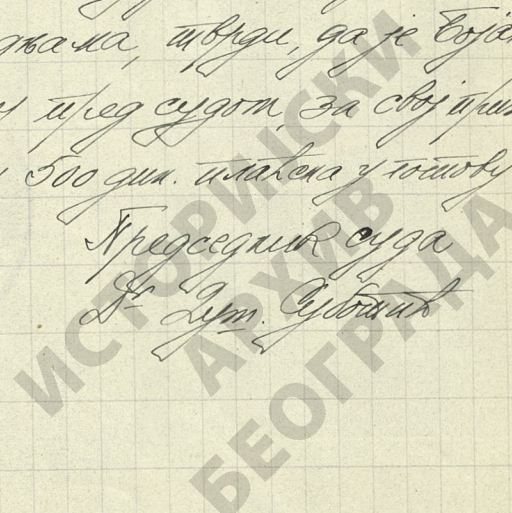 тврди, да је Бојан
пред судом, за свој
500 дин. плаћена у готову
Председник суда
Др Душ. Суботић
ИСТОРИЈСКИ
АРХИВ
БЕОГРАДА